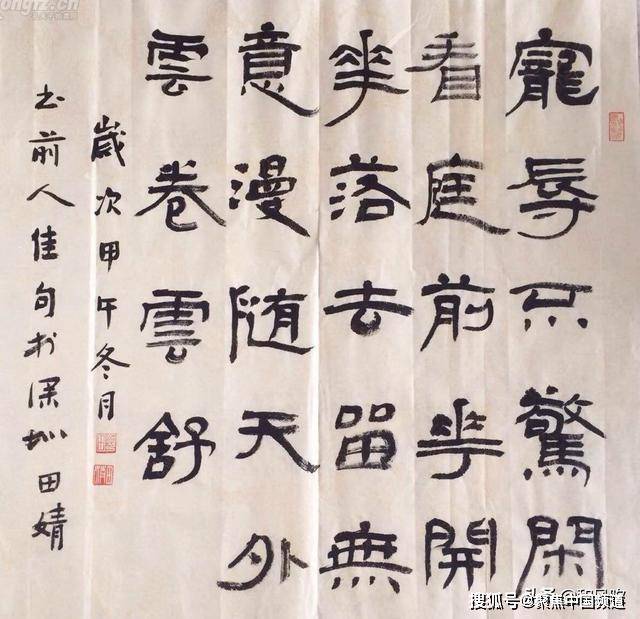 寵辱不驚閑
看庭前花開
花落去留無
意漫随天外
雲卷雲舒
歲次甲午冬月
书前人佳句於深圳田婧
搜狐号@聚焦中国频道